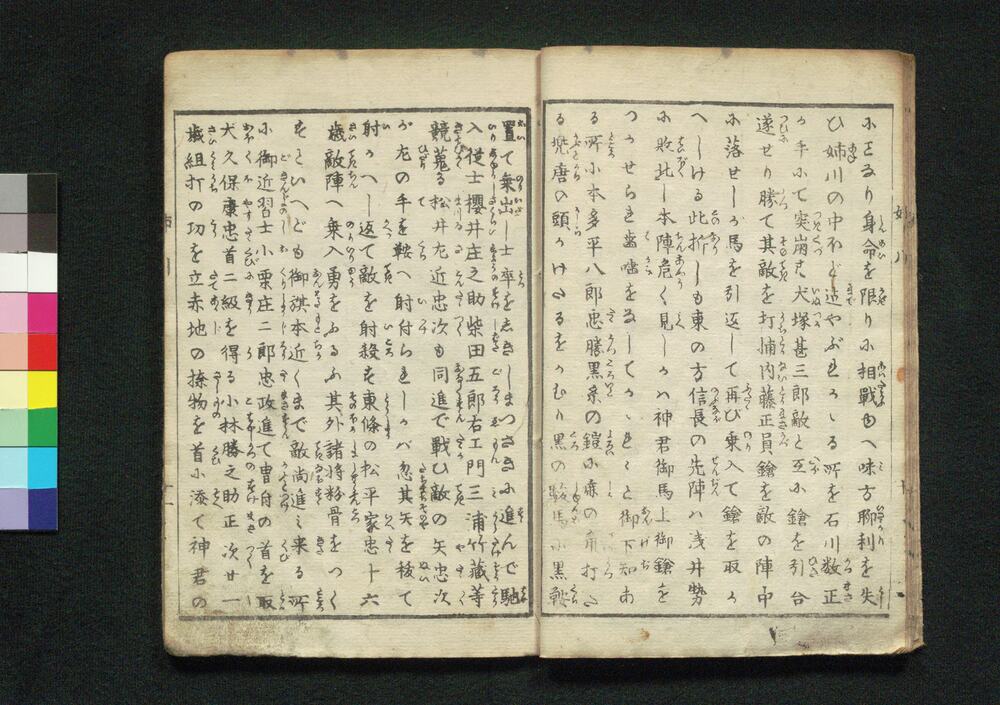 にエるり身命を限りに相戦ゆへ味方聊利を失
ひ姉川の中ほど迄やぶれかゝる所を石川数正
手にて突崩す犬塚甚三郎敵と互に鎗を引合
遂せり勝て其敵を打捕内藤正員鎗を敵の陣中
に落せしが馬を引返して再び乗入て鎗を取
へしける此折しも東の方信長の先陣ハ浅井勢
に敗北し本陣危く見しかハ神君御馬上御鎗を
つかせられ歯噛をなしてかゝれ〳〵と御下知あ
る所に本多平八郎忠勝黒糸の鎧に鹿の角打
る兜唐の頭かけたるをかむり黒の駮馬に黒鞍
置て乗出し士卒をはげましまつさきに進んで馳
入従士櫻井庄之助柴田五郎右エ門三浦竹藏等
競蒐る松井左近忠次も同進で戦ひ敵の矢忠次
が左の手を鞍へ射付られしかバ忽其矢を抜て
射かへし返て敵を射殺す東條の松平家忠十六
歳敵陣へ乗入勇をふるふ其外諸将粉骨をつく
すといへども御旗本近くまで敵尚進ミ来る所
に御近習士小栗庄二郎忠政進て冑付の首を取
犬久保康忠首二級を得る小林勝之助正次廿一
歳組打の功を立赤地の捺物を首に添て神君の